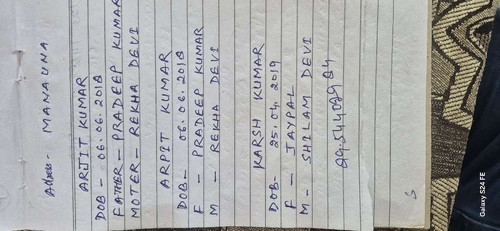 Address - MANAUNA
ARJIT KUMAR
DOB - 06.06.2018
FATHER - PRADEEP KUMAR
MOTER - REKHA DEVI
ARPIT KUMAR
DOB - 06.06.2018
F - PRADEEP KUMAR
M - REKHA DEVI
KARSH KUMAR
DOB - 25.04.2019
F - JAYPAL
M - SHILAM DEVI
Galaxy S24 FE